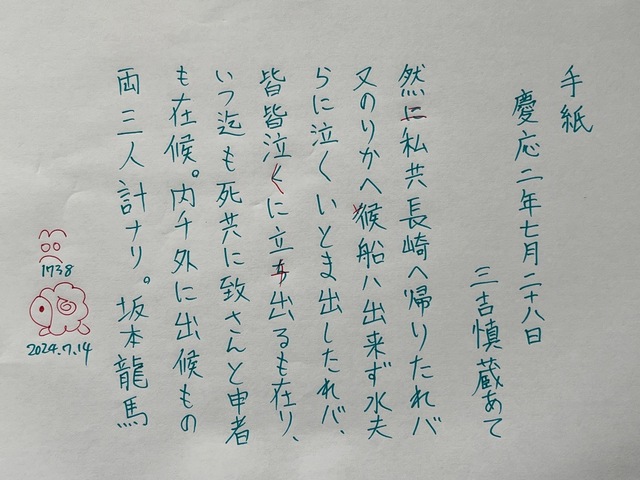 手紙
慶応二年七月二十八日
三吉慎蔵あて
然に私共長崎へ帰りたれバ
又のりかへ候船ハ出来ず水夫
らに泣くいとま出したれバ、
皆皆泣くに立ち出るも在り、
いつ迄も死共に致さんと申者
も在候。内チ外に出候もの
両三人計ナリ。坂本龍馬
1738
2024.7.14